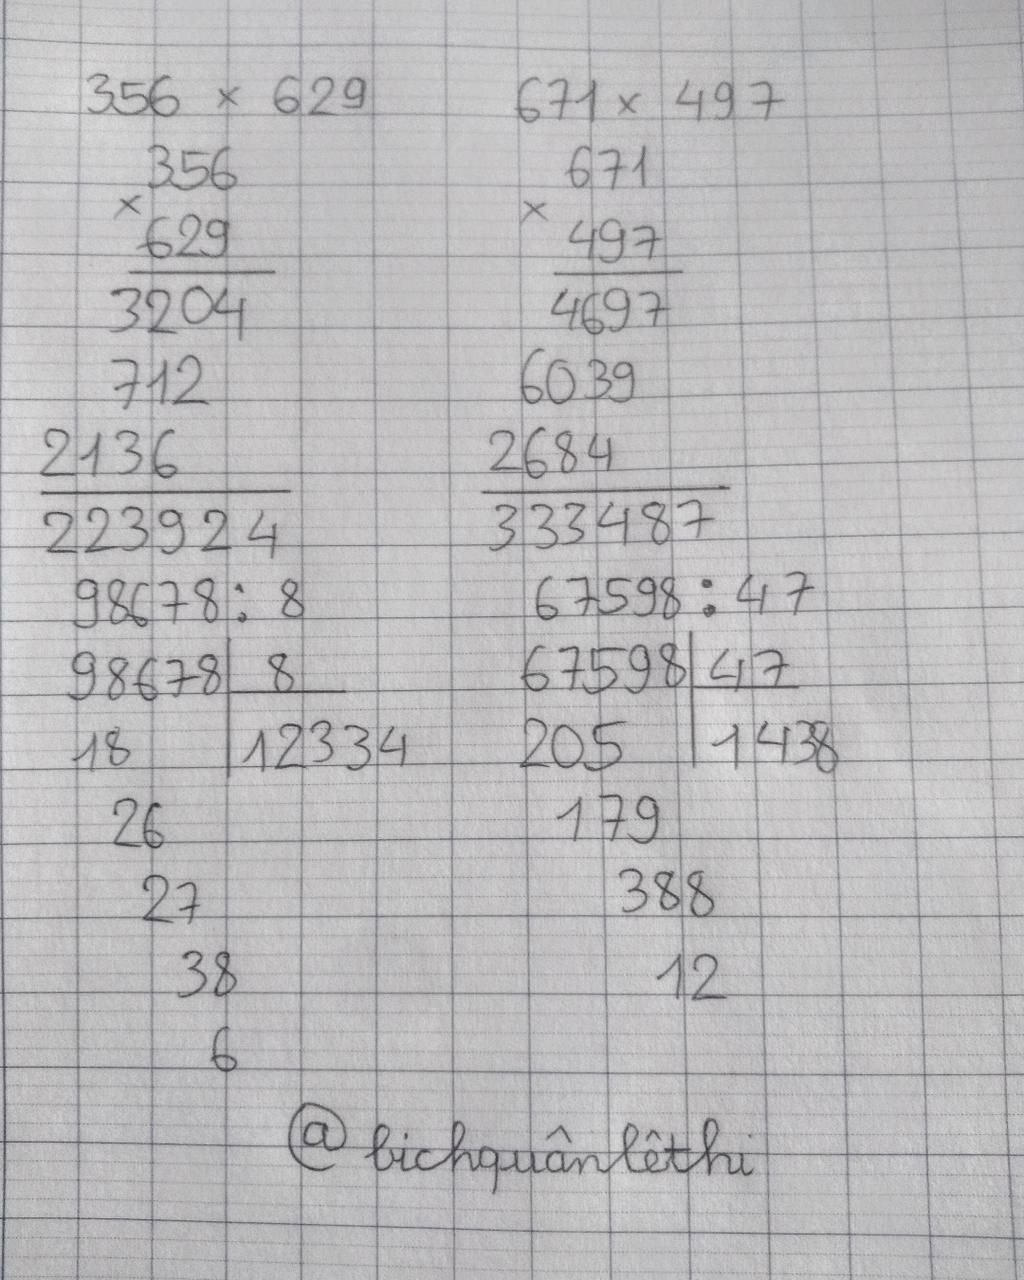 356 × 629
356
×
629
3204
712
2136
223924
98678 : 8
98678 8
18 12334
26
27
38
6
671 × 497
671
×
497
4697
6039
2684
333487
67598 : 47
67598 47
205 1438
179
388
12
@bichquânlêthi